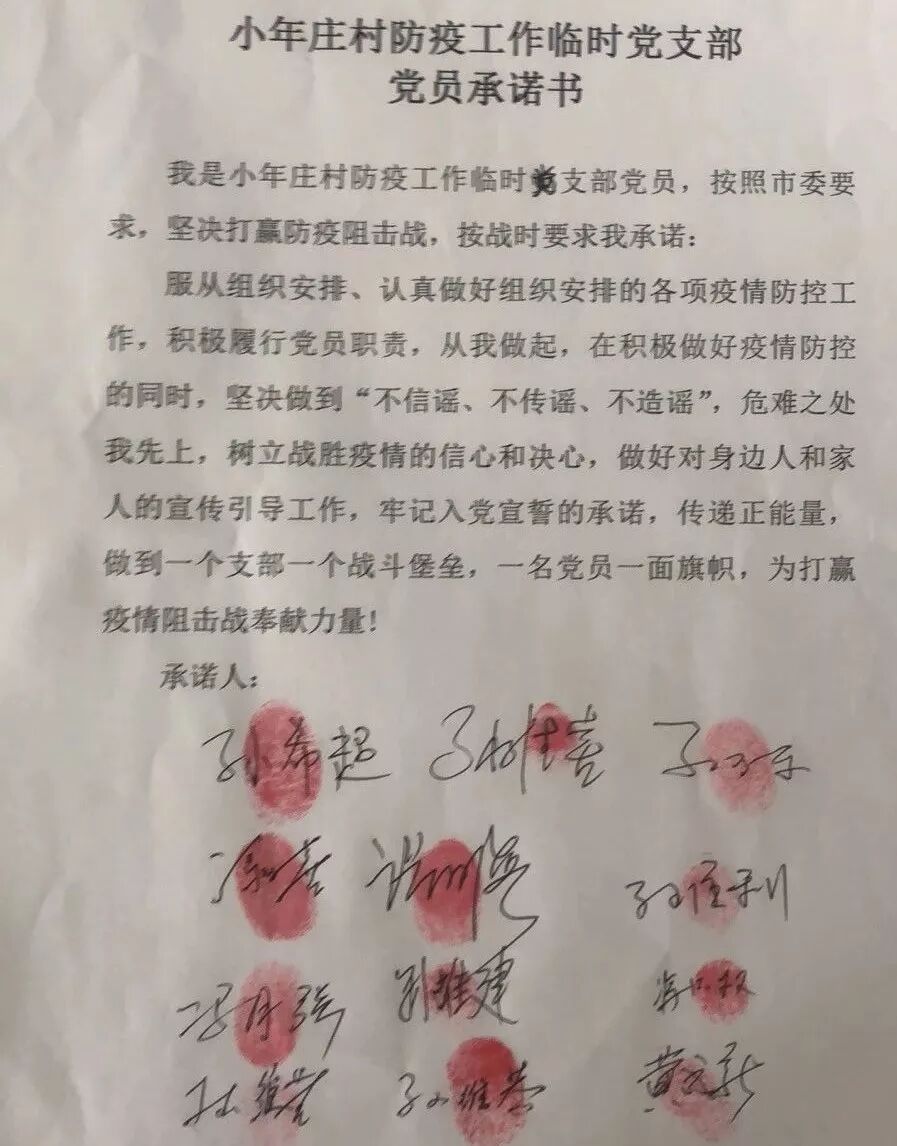 小年庄村防疫工作临时党支部
党员承诺书
我是小年庄村防疫工作临时党支部党员，按照市委要
求，坚决打赢防疫阻击战，按战时要求我承诺：
服从组织安排、认真做好组织安排的各项疫情防控工
作，积极履行党员职责，从我做起，在积极做好疫情防控
的同时，坚决做到“不信谣、不传谣、不造谣”，危难之处
我先上，树立战胜疫情的信心和决心，做好对身边人和家
人的宣传引导工作，牢记入党宣誓的承诺，传递正能量，
做到一个支部一个战斗堡垒，一名党员一面旗帜，为打赢
疫情阻击战奉献力量!
承诺人：
孙希超
孙维利
冯月强 刘维建